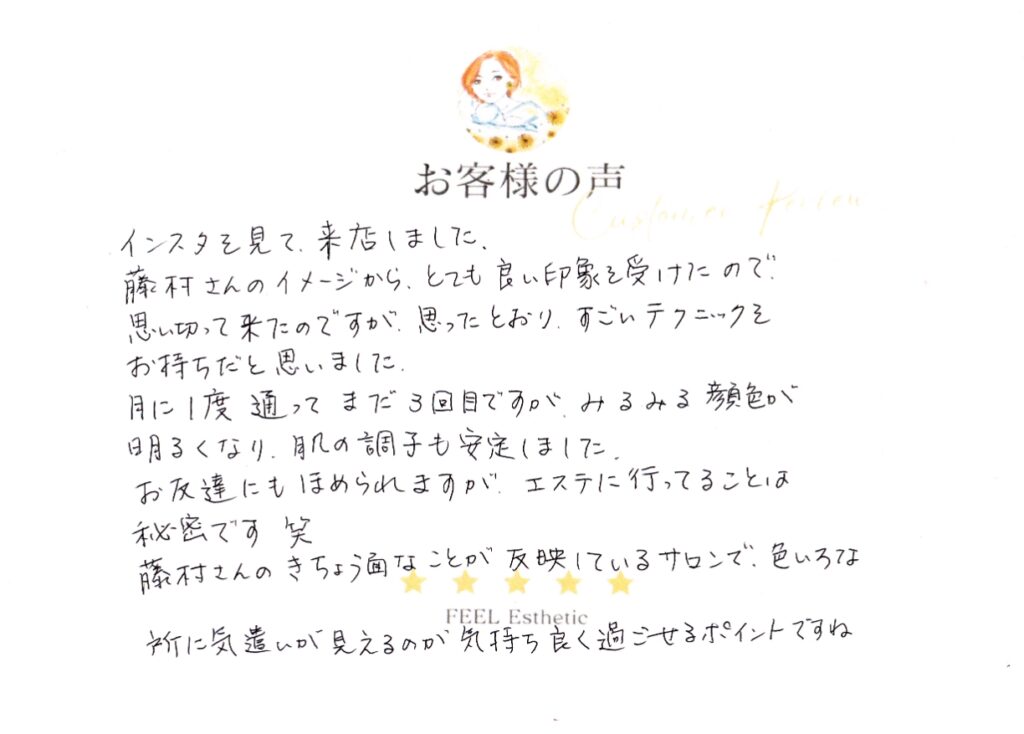 お客様の声
Customer Review
インスタを見て、来店しました。
藤村さんのイメージから、とても良い印象を受けたので、
思い切って来たのですが、思ったとおり、すごいテクニックを
お持ちだと思いました。
月に1度 通って まだ3回目ですが、みるみる顔色が
明るくなり、肌の調子も安定しました。
お友達にもほめられますが、エステに行ってることは
秘密です 笑
藤村さんのきちょう面なことが反映しているサロンで、色いろな
FEEL Esthetic
所に気遣いが見えるのが気持ち良く過ごせるポイントですね